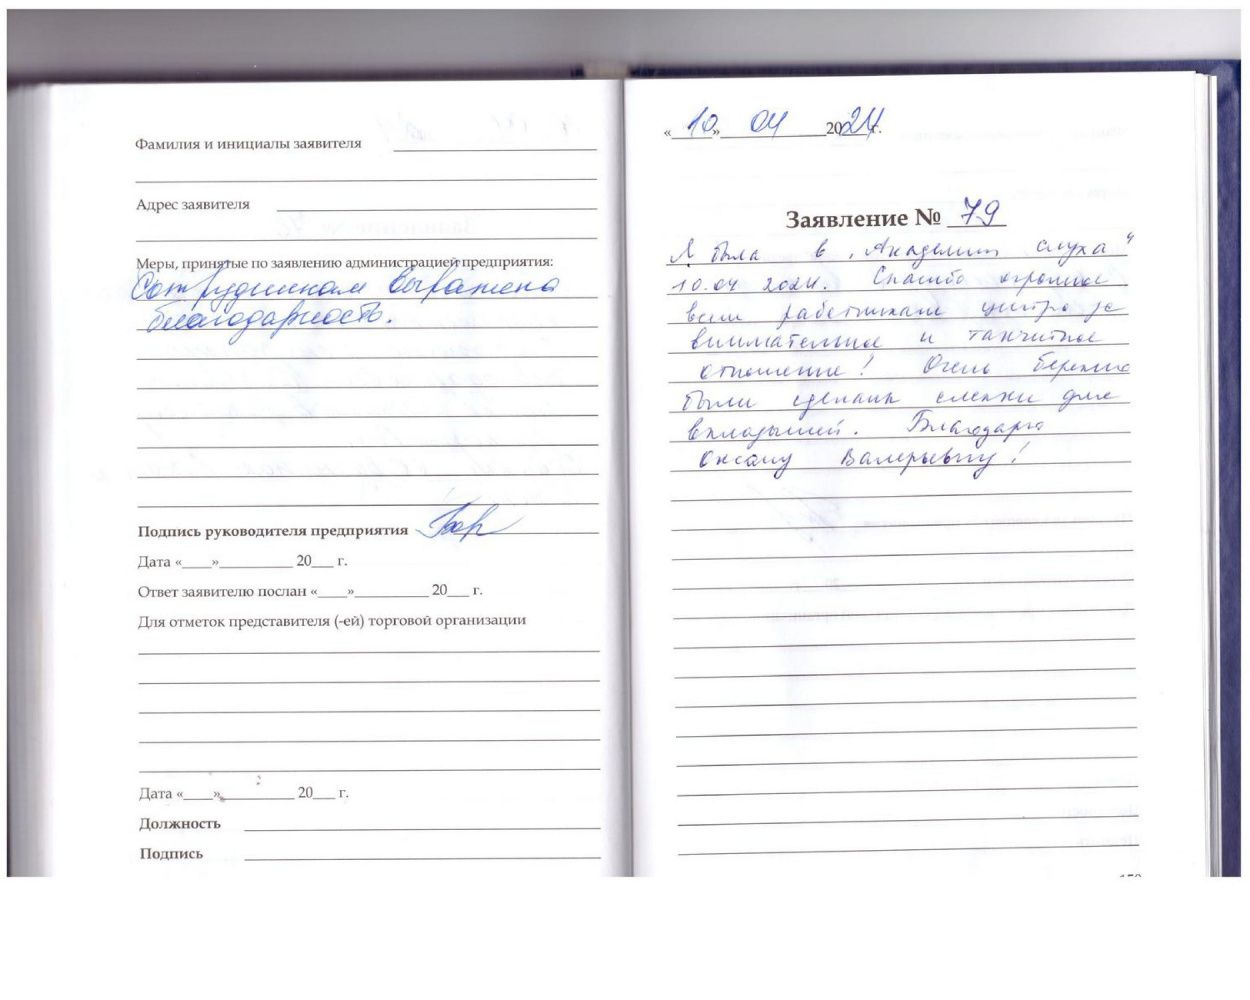 Фамилия и инициалы заявителя
Адрес заявителя
Меры, принятые по заявлению администрацией предприятия:
Сотрудникам выражена
благодарность.
Подпись руководителя предприятия
Дата «___»__________ 20___ г.
Ответ заявителю послан «___»__________ 20___ г.
Для отметок представителя (-ей) торговой организации
Дата «___»__________ 20___ г.
Должность
Подпись
«10» 04 2024 г.
Заявление № 79
Я была в „Академии слуха"
10.04 2024. Спасибо огромное
всем работникам центра за
внимательное и тактичное
отношение! Очень бережно
были сделаны слепки для
вкладышей. Благодарю
Оксану Валерьевну!